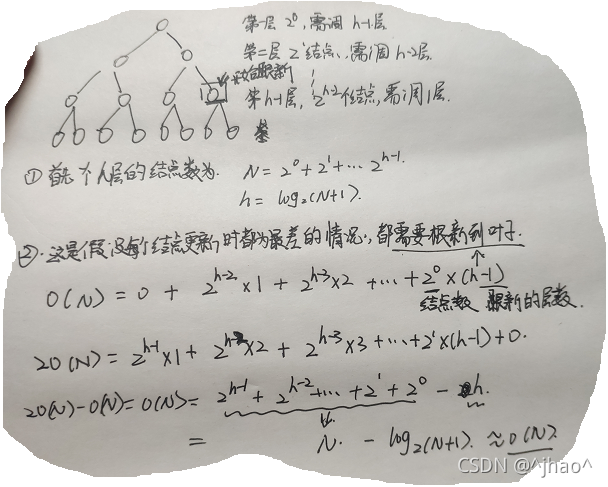 第一层 2⁰, 需调 h-1层
第二层 2¹结点, 需调 h-2层
从这开始更新
第h-1层, 2^{h-2}个结点, 需调1层.
① 首先 个h层的结点数为. N = 2⁰ + 2¹ + ... 2^{h-1}.
h = log₂(N+1).
②. 这是假设每个结点更新时都为最差的情况, 都需要跟新到叶子.
O(N) = 0 + 2^{h-2}×1 + 2^{h-3}×2 + ... + 2⁰×(h-1)
结点数 跟新的层数.
2O(N) = 2^{h-1}×1 + 2^{h-2}×2 + 2^{h-3}×3 + ... + 2¹×(h-1) + 0.
2O(N)-O(N) = O(N) = 2^{h-1} + 2^{h-2} + ... + 2¹ + 2⁰ - h.
= N. - log₂(N+1). ≈ O(N).
CSDN @^jhao^